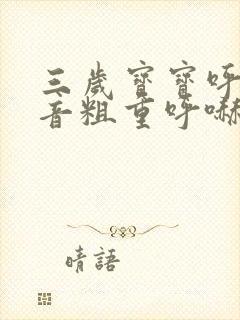 三歲寶寶呼
音粗重呼嚇
晴語